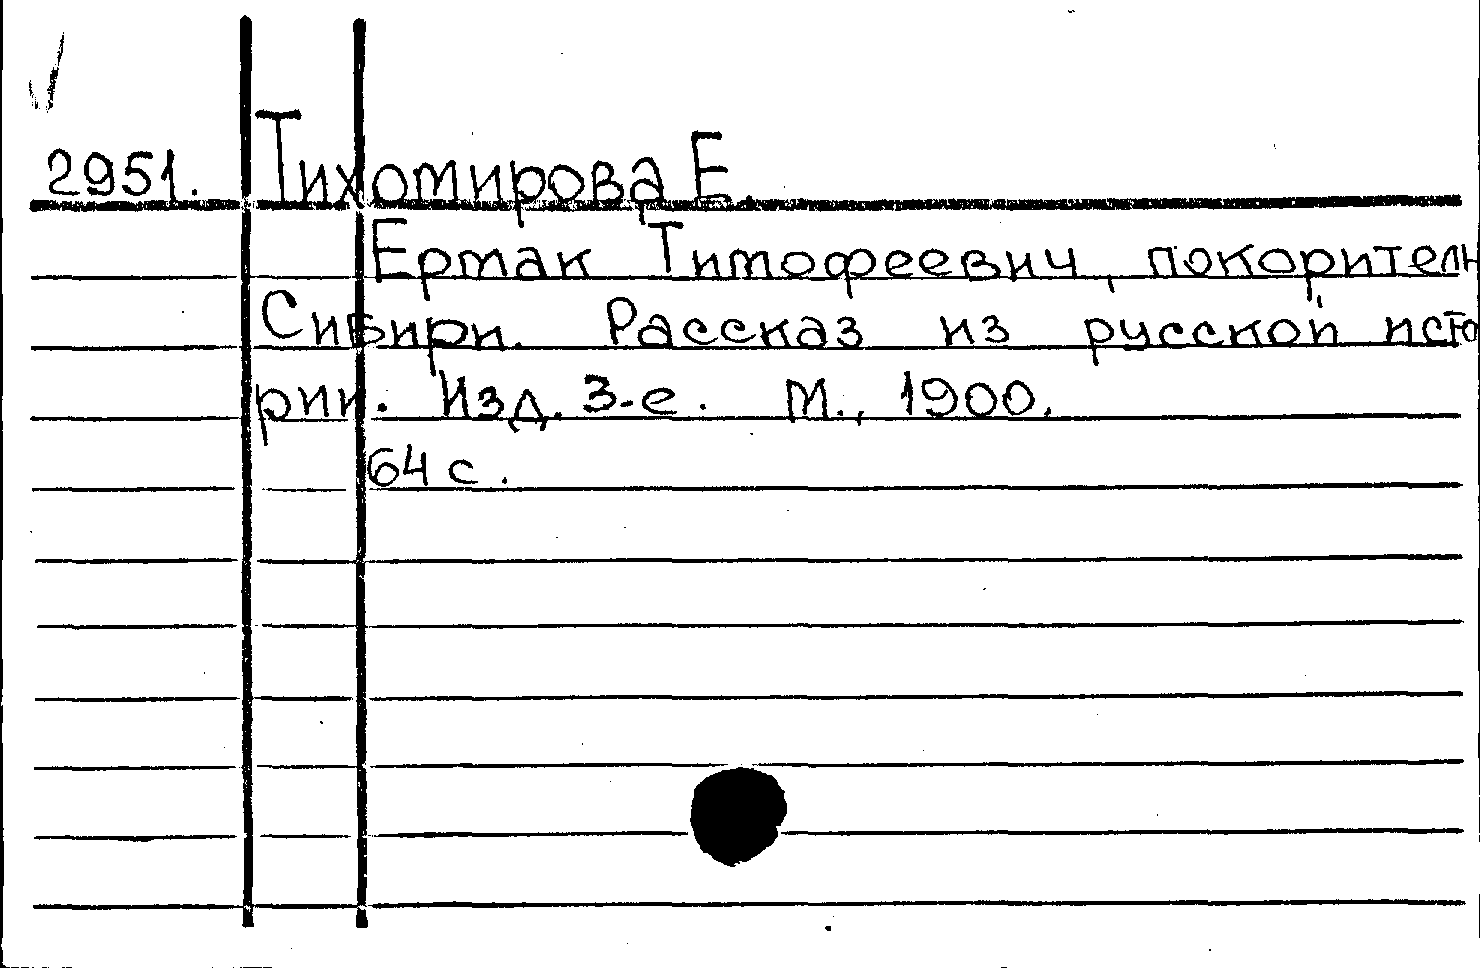 2951. Тихомирова Е.
Ермак Тимофеевич, покоритель
Сибири. Рассказ из русской исто
рии. Изд. 3-е. М., 1900.
64 с.